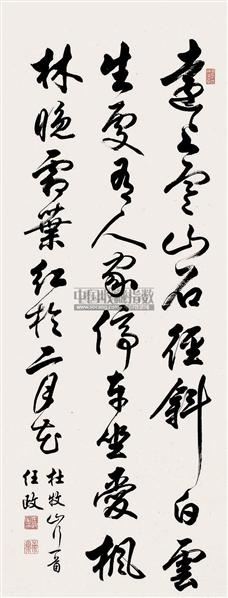 遠上寒山石徑斜白雲
生處有人家停車坐愛楓
林晚霜葉紅於二月花
杜牧山行一首
任政